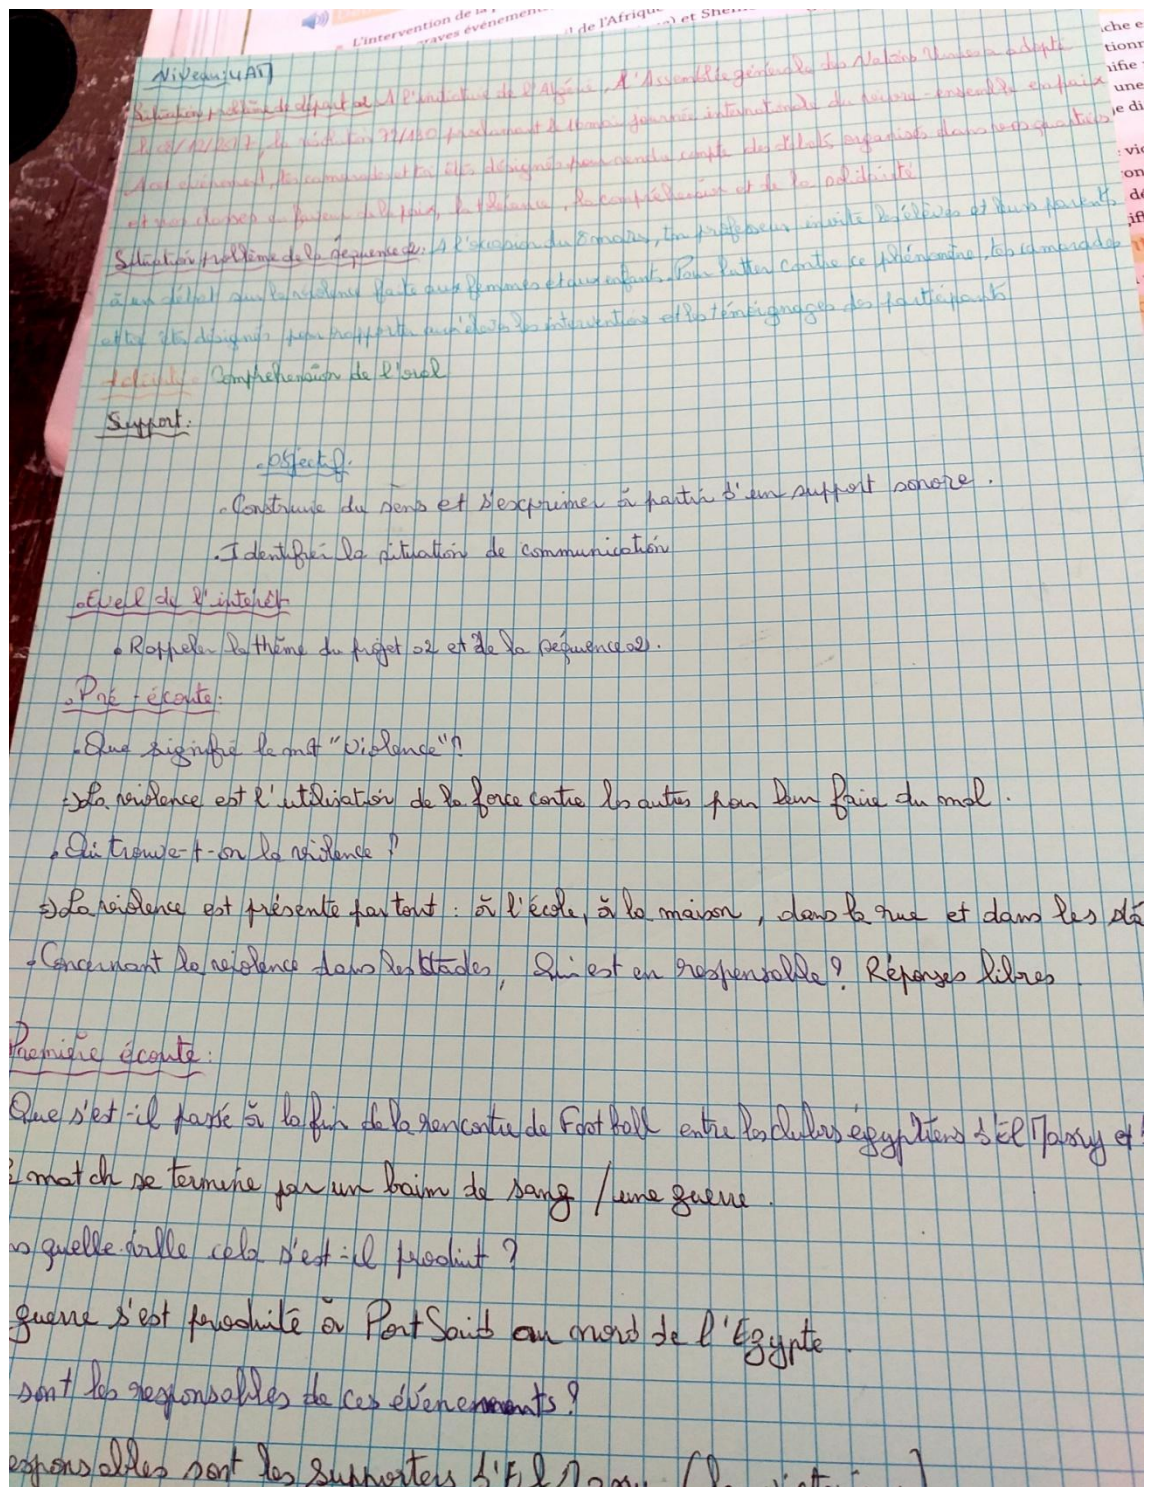 L'intervention de la
graves événemen
l de l'Afriqu
) et She
che e
tionn
ifie
une
e di
vic
on
de
if
Niveau: 4AM
Situation problème de départ : A l'initiative de l'Algérie, l'Assemblée générale des Nations Unies a adopté
le 08/12/2017, la résolution 72/130 proclamant le 16 mai journée internationale du vivre-ensemble en paix
A cet événement, tes camarades et toi êtes désignés pour rendre compte des débats organisés dans vos quartiers
et vos classes en faveur de la paix, la tolérance, la compréhension et de la solidarité
Situation problème de la séquence 02: A l'occasion du 8 mars, un professeur invite les élèves et leurs parents
à un débat sur la violence faite aux femmes et aux enfants. Pour lutter contre ce phénomène, tes camarades
et toi êtes désignés pour rapporter les interventions et les témoignages des participants
Activité: Compréhension de l'oral
Support:
Objectif:
- Construire du sens et s'exprimer à partir d'un support sonore.
. Identifier la situation de communication
. Eveil de l'intérêt
. Rappeler le thème du projet 02 et de la séquence 02.
. Pré-écoute:
. Que signifie le mot "violence"?
=> La violence est l'utilisation de la force contre les autres pour leur faire du mal.
. Où trouve-t-on la violence?
=> La violence est présente partout: à l'école, à la maison, dans la rue et dans les sta
. Concernant la violence dans les stades, Qui est en responsable? Réponses libres
Première écoute:
Que s'est-il passé à la fin de la rencontre de Football entre les clubs égyptiens d'El Masry et
match se termine par un baim de sang / une guerre.
s quelle ville cela s'est-il produit?
guerre s'est produite à Port Said au nord de l'Egypte.
sont les responsables de ces évènements?
esponsables sont les supporters d'El Masry